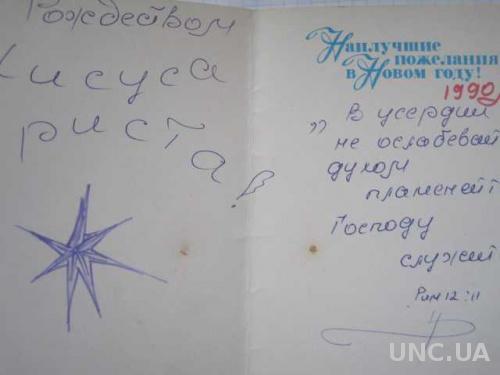 Рождеством
Иисуса
риста!
Наилучшие
пожелания
в Новом году!
1990
„ В усердии
не ослабевайт
духом
пламенейт
Господу
служит
Рим 12:11
UNC.UA